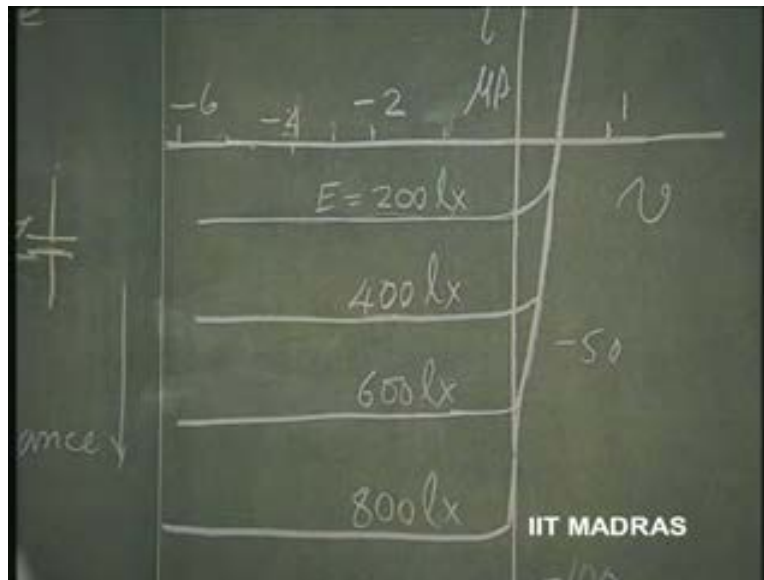 E
i
μA
-6 -4 -2 1
E = 200 lx
v
400 lx
-50
600 lx
ance
800 lx
IIT MADRAS
-100